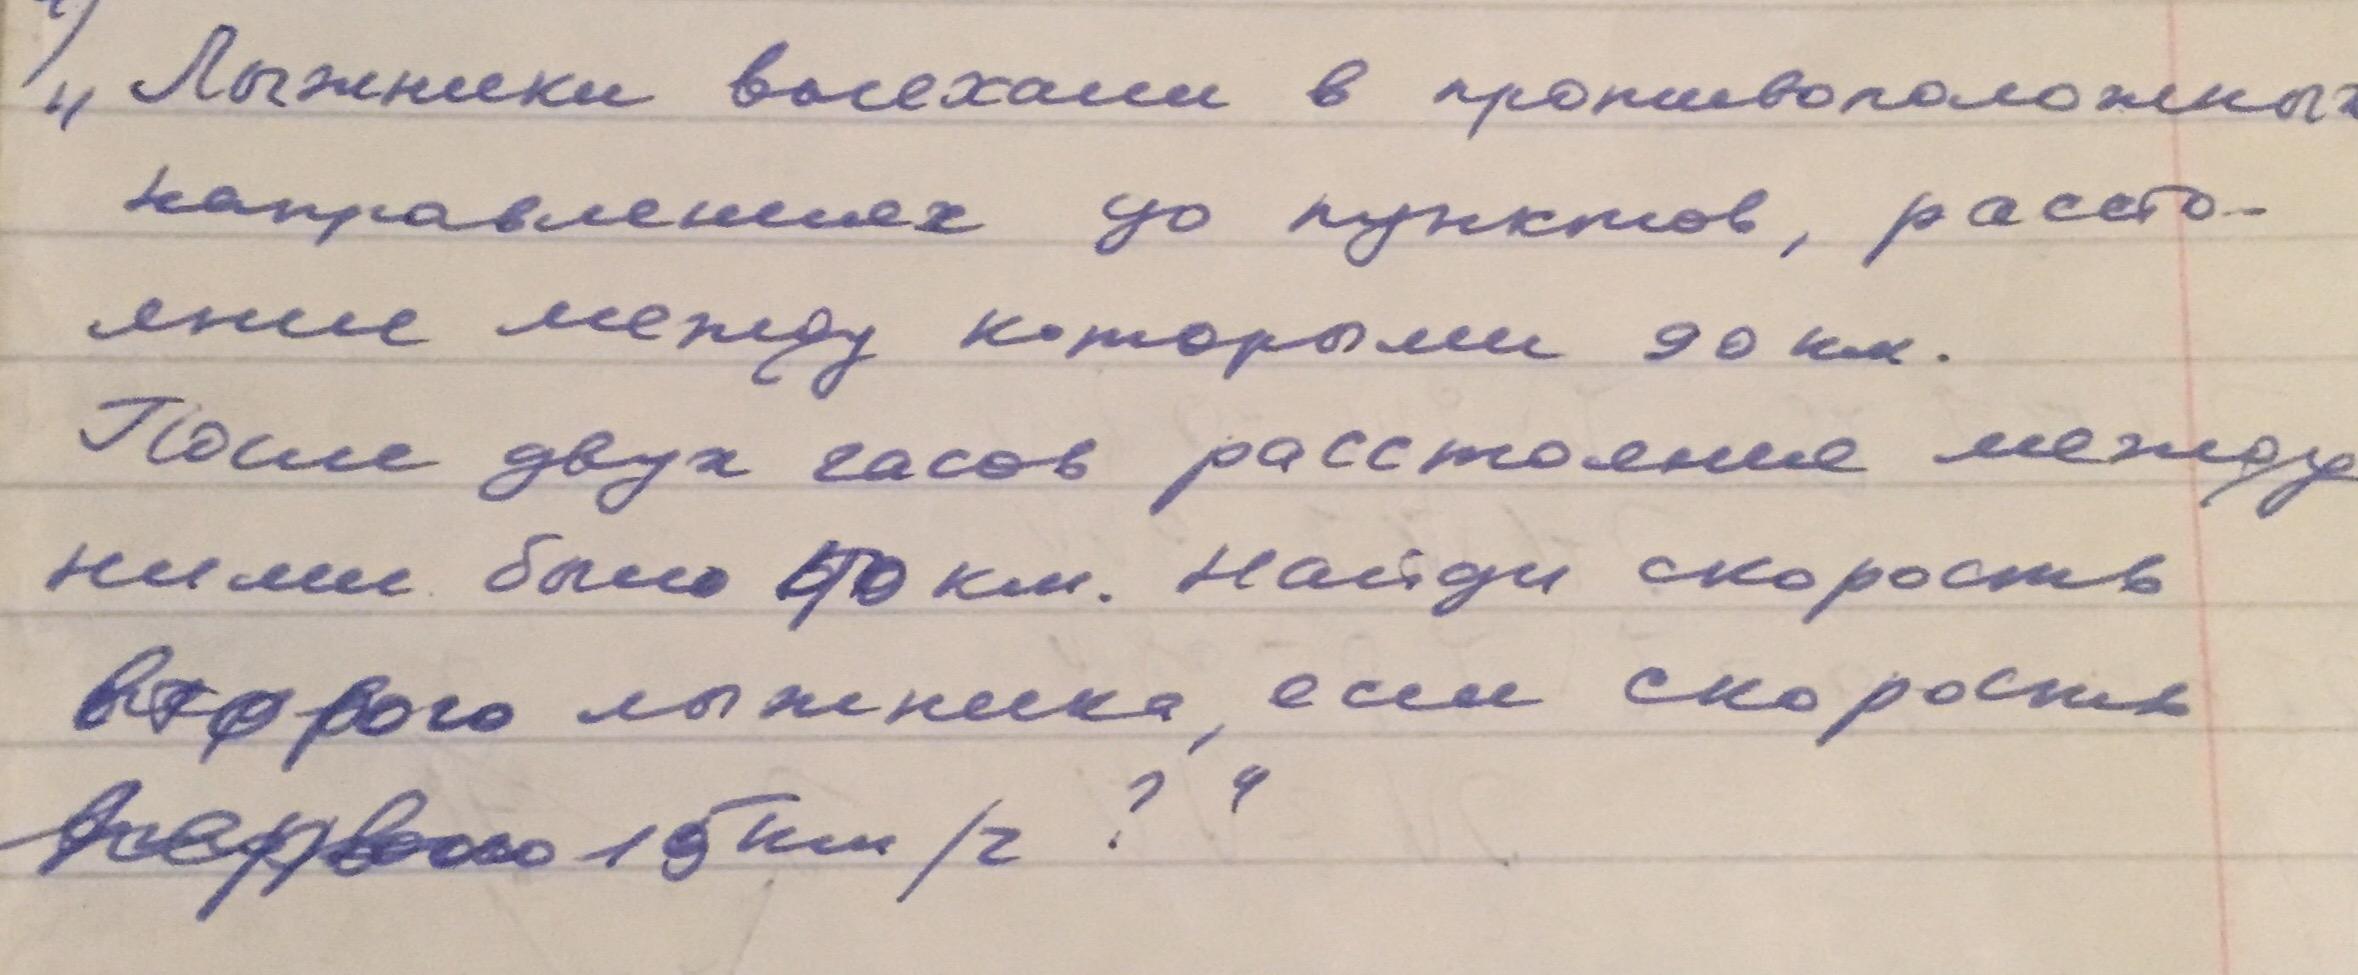 „Лыжники выехали в противоположных
направлениях до пунктов, рассто-
яние между которыми 90 км.
После двух часов расстояние между
ними было км. Найди скорость
второго лыжника, если скорость
первого 15 км/ч?"